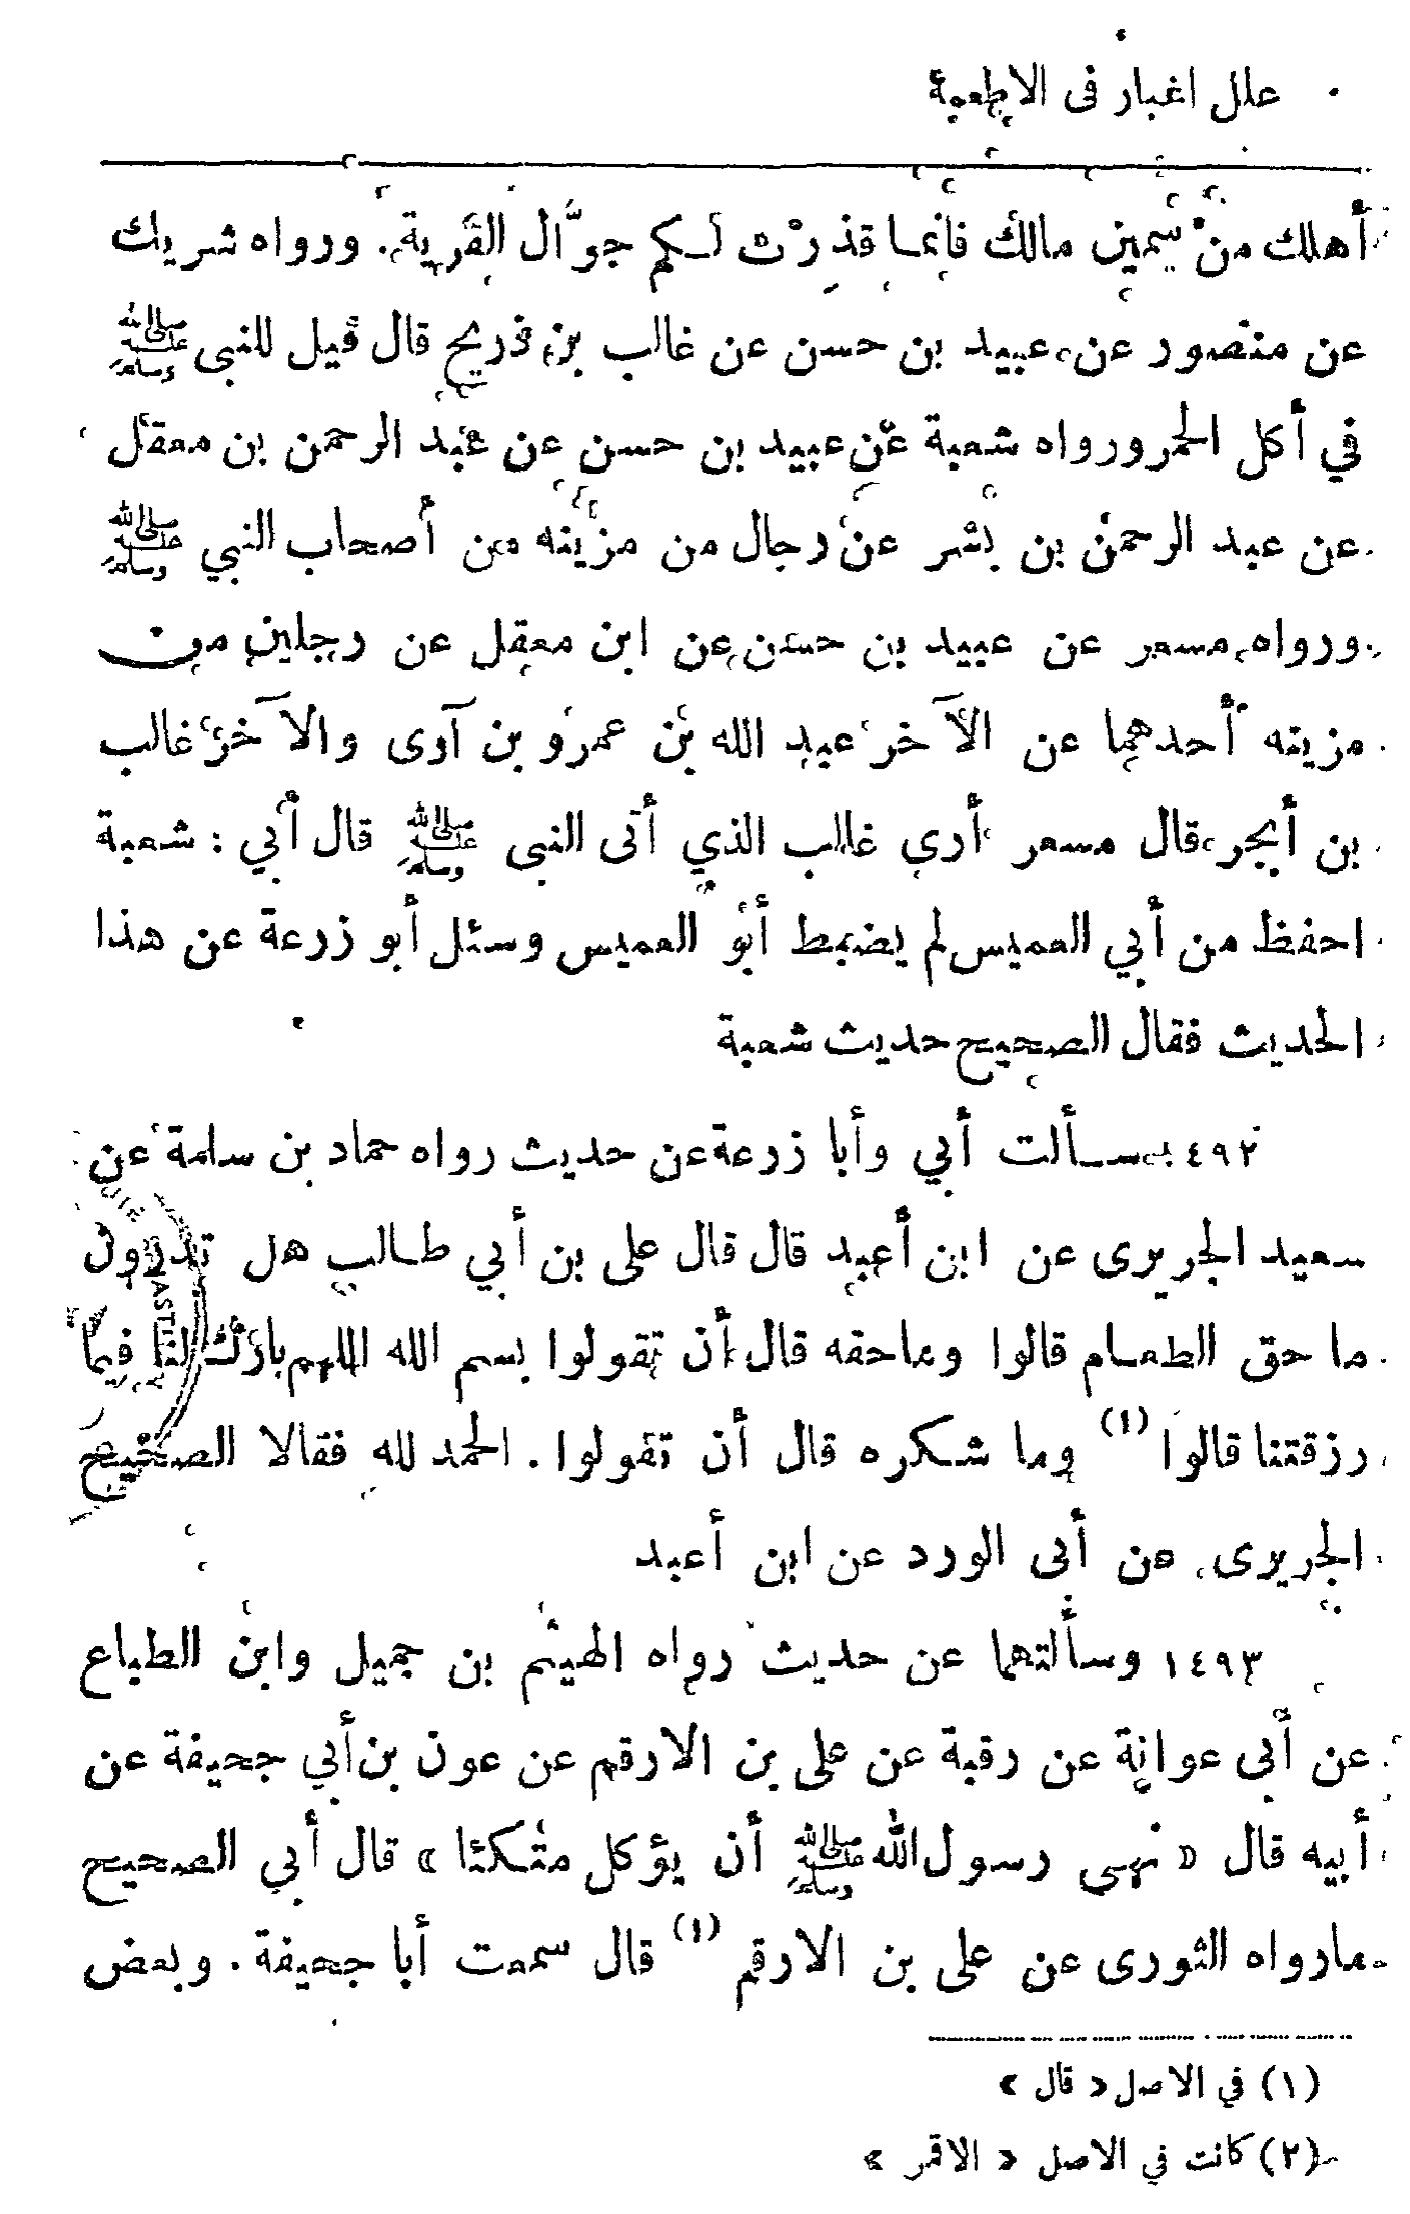 علل اخبار فى الاطعمة
أهلك من سمين مالك فانما قذرت لكم جوَّال القرية. ورواه شريك
عن منصور عن عبيد بن حسن عن غالب بن ذريح قال قيل للنبى ﷺ
في أكل الحمر ورواه شعبة عن عبيد بن حسن عن عبد الرحمن بن معقل
عن عبد الرحمن بن بشر عن رجال من مزينه من أصحاب النبي ﷺ
ورواه مسعر عن عبيد بن حسن عن ابن معقل عن رجلين من
مزينه أحدهما عن الآخر عبد الله بن عمرو بن آوى والآخر غالب
بن أبجر قال مسعر أرى غالب الذي أتى النبى ﷺ قال أبي : شعبة
احفظ من أبي العميس لم يضبط أبو العميس وسئل أبو زرعة عن هذا
الحديث فقال الصحيح حديث شعبة
٤٩٢ ـ سـألت أبي وأبا زرعة عن حديث رواه حماد بن سلمة عن
سعيد الجريرى عن ابن أعبد قال قال على بن أبي طـالب هل تدرون
ما حق الطعـام قالوا وما حقه قال أن تقولوا بسم الله اللهم بارك لنا فيما
رزقتنا قالوا (١) وما شـكره قال أن تقولوا . الحمد لله فقالا الصحيح
الجريرى عن أبى الورد عن ابن أعبد
١٤٩٣ وسألتهما عن حديث رواه الهيثم بن جميل وابن الطباع
عن أبى عوانة عن رقبة عن على بن الارقم عن عون بن أبي جحيفة عن
أبيه قال « نهى رسول الله ﷺ أن يؤكل متكئا » قال أبي الصحيح
مارواه الثورى عن على بن الارقم (١) قال سمعت أبا جحيفة . وبعض
(١) في الاصل « قال »
(٢) كانت في الاصل « الاقمر »